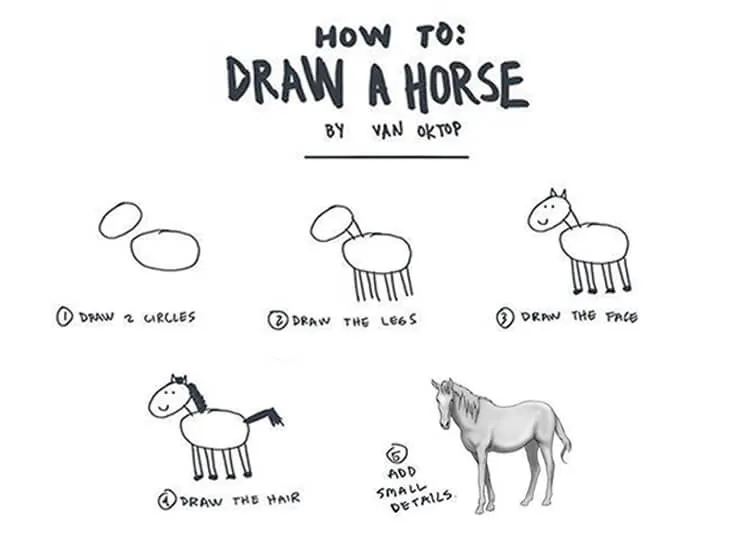 HOW TO:
DRAW A HORSE
BY VAN OKTOP
① DRAW 2 CIRCLES
② DRAW THE LEGS
③ DRAW THE FACE
④ DRAW THE HAIR
⑤
ADD
SMALL
DETAILS.